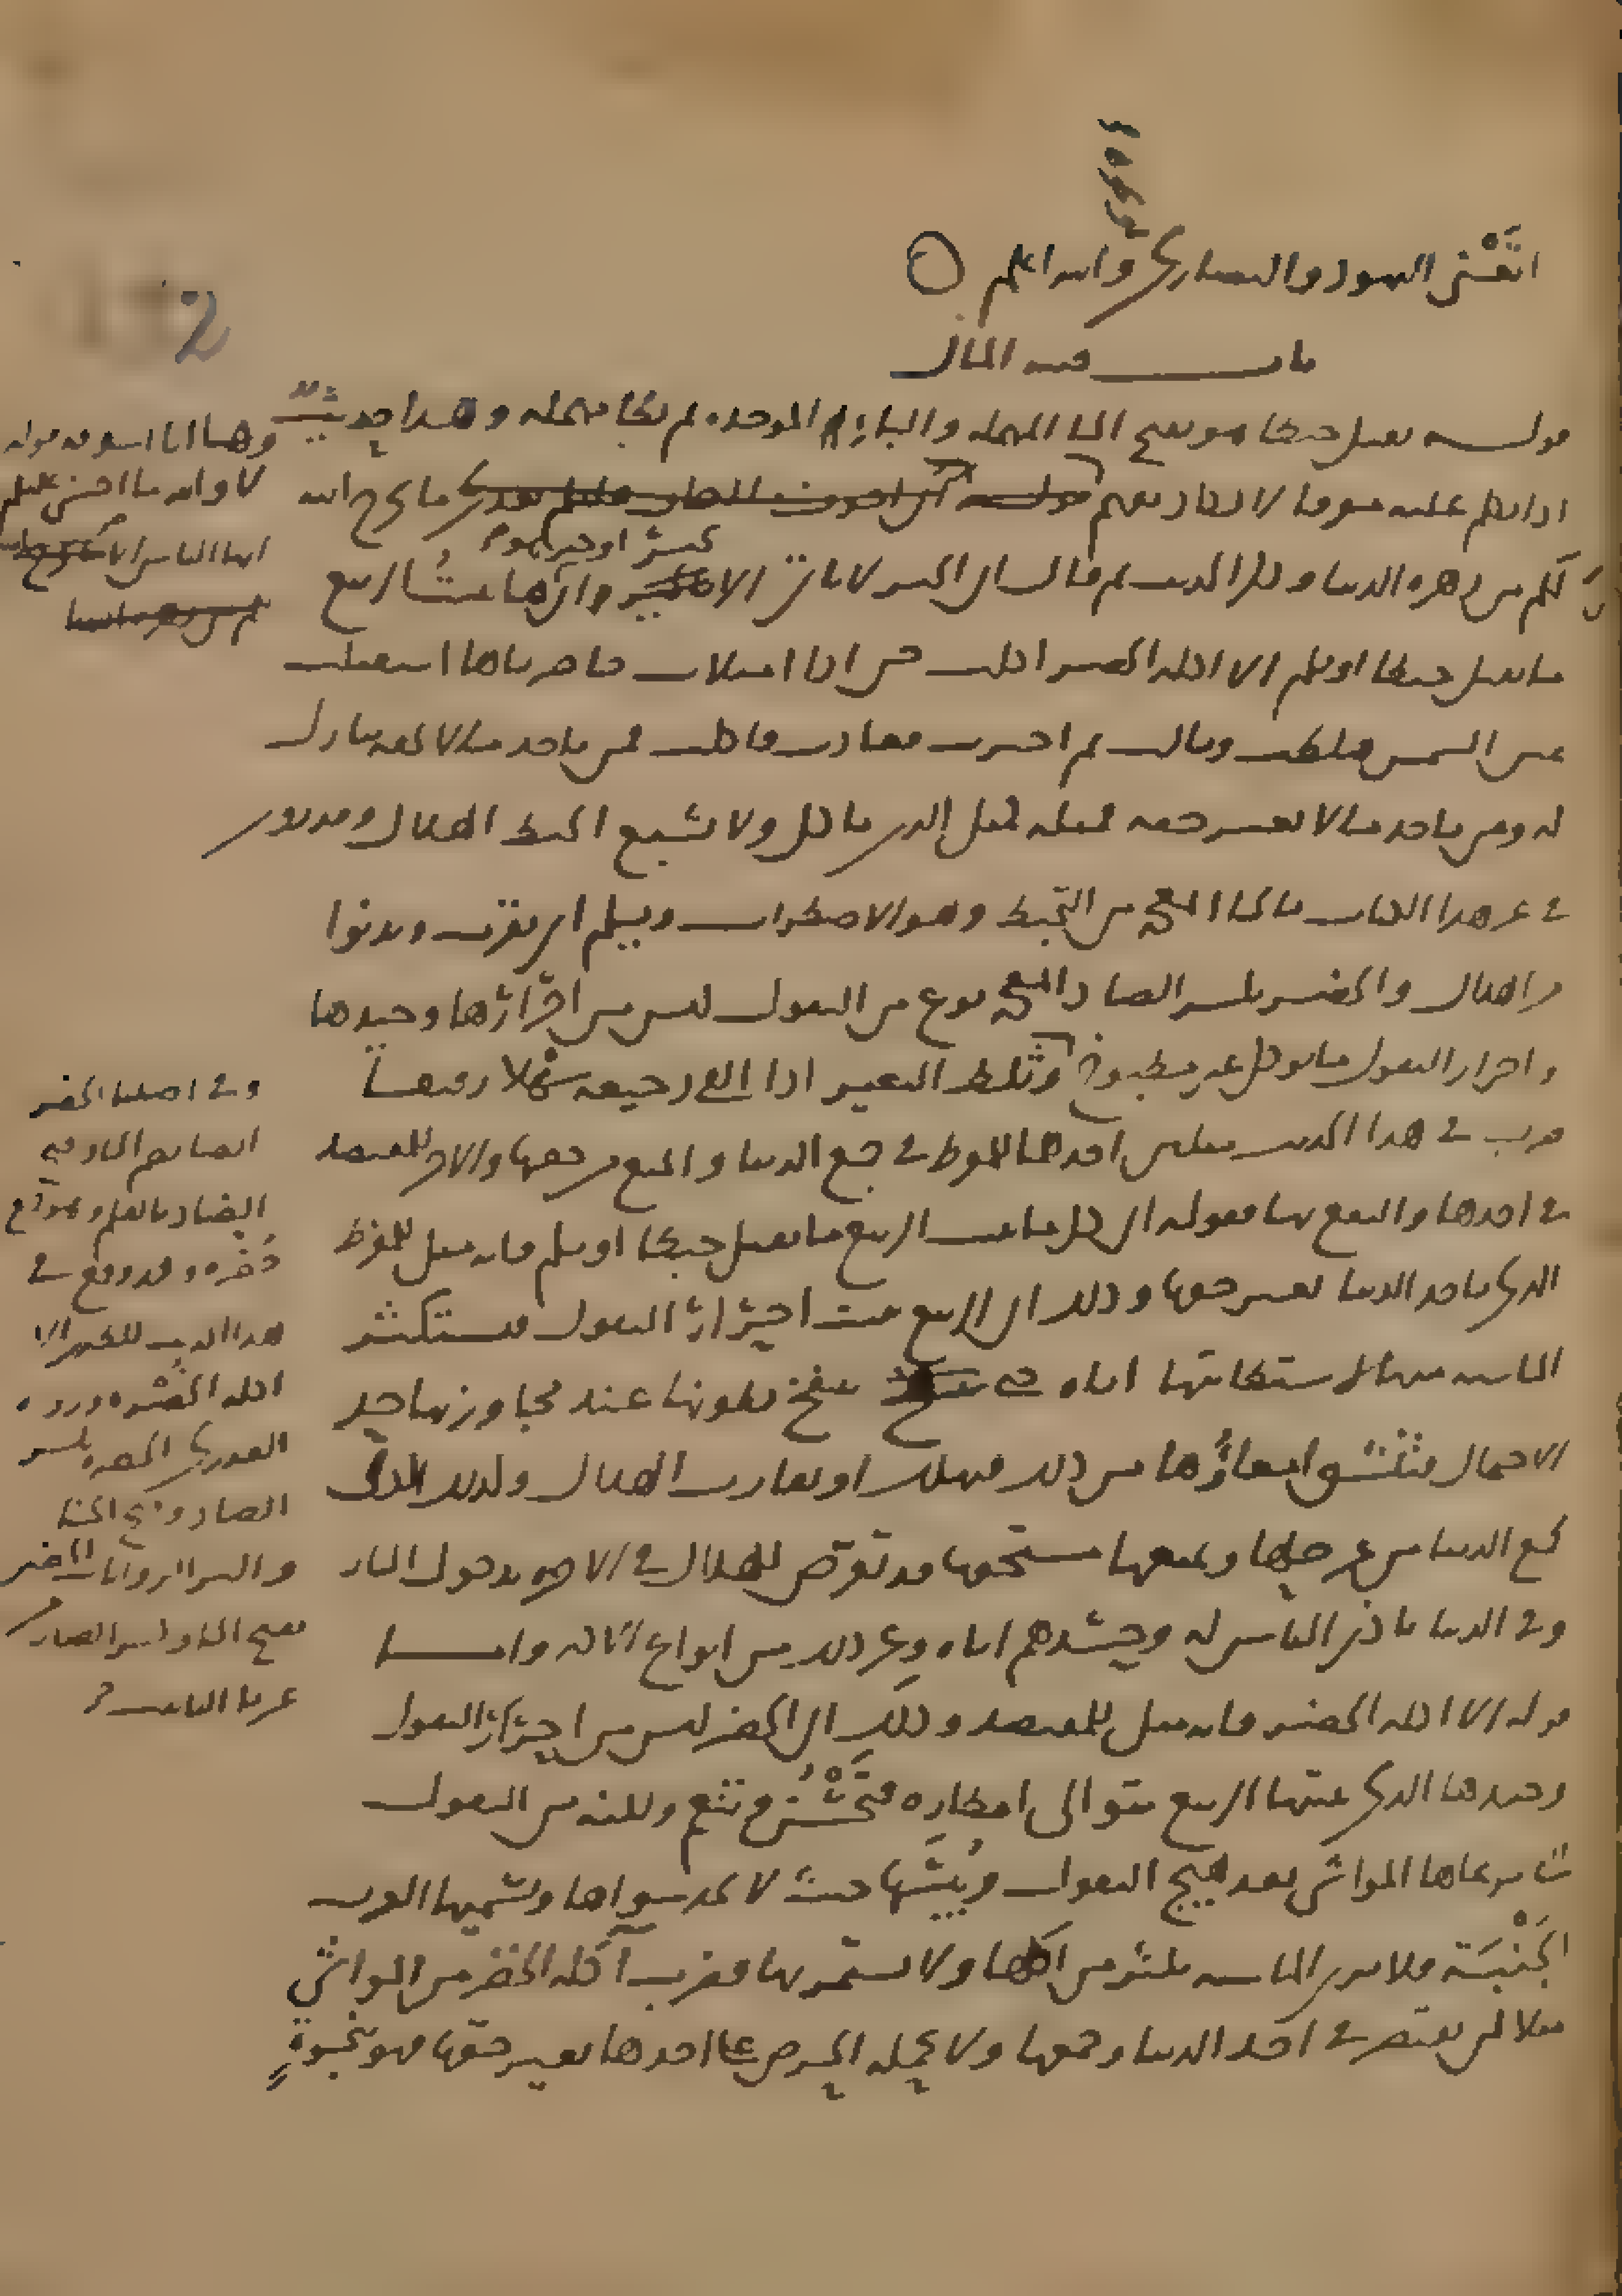 اتقى اليهود والنصارى والله اعلم
باب فتنة المال
قوله يقتل حبطا هو بفتح الحا المهملة والبا الموحدة ثم بطا مهملة وهذا حديث
اذا تكلم عليه
لكم من زهرة الدنيا وذكر الحديث ثم قال ان الخير لا ياتي الا وان مما ينبت الربيع
ما يقتل حبطا او يلم الا اكلة الخضر اكلت حتى اذا امتلات خاصرتاها استقبلت
عين الشمس فثلطت وبالت ثم اجترت فعادت فاكلت فمن ياخذ مالا بحقه يبارك
له ومن ياخذ مالا بغير حقه فمثله كمثل الذي ياكل ولا يشبع الحبط الهلاك وقد يروى
في غير هذا الكتاب بالخا المعجمة من التخبط وهو الاضطراب ويلم اي يقرب ويدنوا
من الهلاك والخضر بكسر الضاد المعجمة نوع من البقول ليس من احرارها وجيدها
واحرار البقول ما يوكل غير مطبوخ وثلط البعير اذا القى رجيعه سهلا رقيقا
ضرب في هذا الحديث مثلين احدهما للمفرط في جمع الدنيا والمنع من حقها والاخر للمقتصد
في اخذها والنفع بها فقوله ان كل ما ينبت الربيع ما يقتل حبطا او يلم فانه مثل للمفرط
الذي ياخذ الدنيا بغير حقها وذلك ان الربيع ينبت احرار البقول فيستكثر
الماشية منها لاستطابتها اياه حتى تنتفخ بطونها عند مجاوزتها حد
الاحتمال فتنشق امعاؤها من ذلك فتهلك او تقارب الهلاك وكذلك الذي
يجمع الدنيا من غير حلها ويمنعها مستحقها قد تعرض للهلاك في الاخرة بدخول النار
وفي الدنيا باذى الناس له وحسدهم اياه وغير ذلك من انواع الاذى واما
قوله الا اكلة الخضر فانه مثل للمقتصد وذلك ان الخضر ليس من احرار البقول
وجيدها الذي ينبتها الربيع بتوالي امطاره فتحسن وتنعم ولكنه من البقول
التي ترعاها المواشي بعد هيج البقول ويبسها حيث لا تجد سواها وتسميها العرب
الجنبة فلا ترى الماشية تكثر من اكلها ولا تستمريها فضرب آكلة الخضر من المواشي
مثلا لمن يقتصر في اخذ الدنيا وجمعها ولا يحمله الحرص على اخذها بغير حقها فهو بنجوة
وهنا انا اسوقه قوله
لا والله ما اخشى عليكم
ايها الناس الا
وفي اصلنا الخضر
ايضا بضم الخا وفتح
الضاد بالقلم وهو جمع
خضرة وقد وقع في
هذا الحديث
اكلة الخضرة ورواه
العذري الخضرة بكسر
الضاد وفتح الخا
واكثر الروايات الخضر
بفتح الخا وكسر الضاد